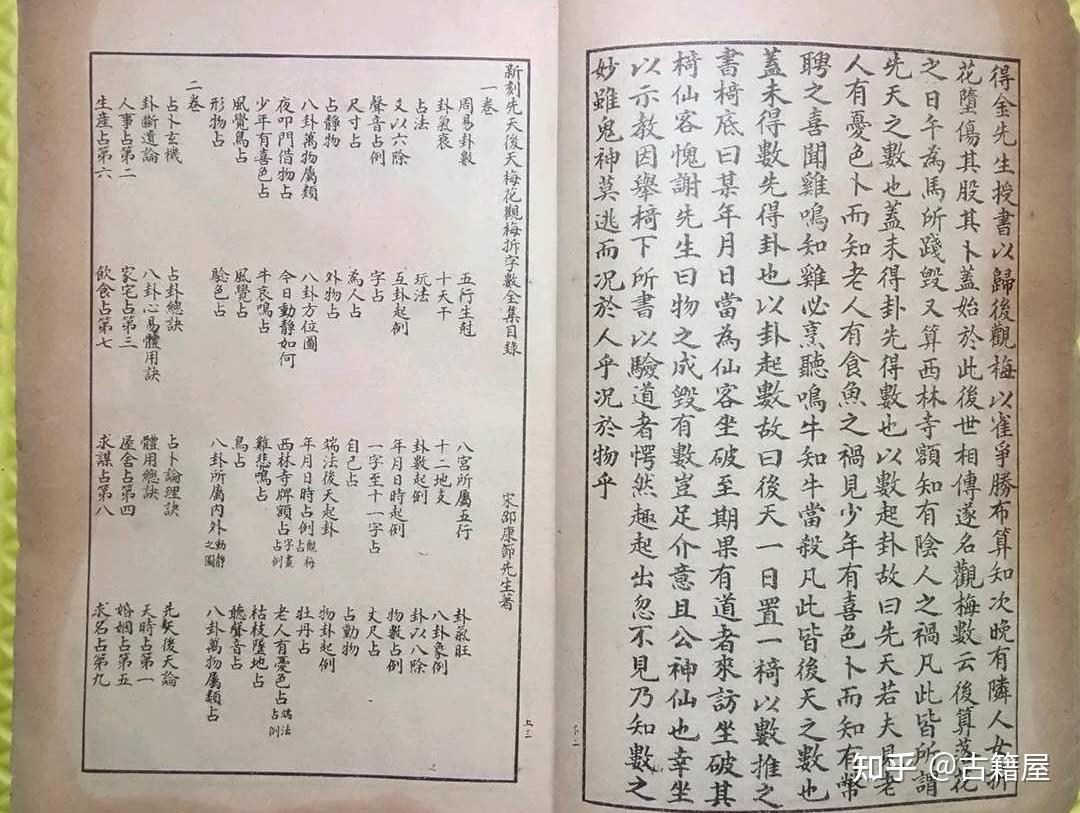 得金先生授書以歸後觀梅以雀爭勝布算知次晚有隣人女折
花墮傷其股其卜蓋始於此後世相傳遂名觀梅數云後算落花
之日午為馬所踐毀又算西林寺額知有陰人之禍凡此皆所謂
先天之數也蓋未得卦先得數也以數起卦故曰先天若夫見老
人有憂色卜而知老人有食魚之禍見少年有喜色卜而知有幣
聘之喜聞雞鳴知雞必烹聽鳴牛知牛當殺凡此皆後天之數也
蓋未得數先得卦也以卦起數故曰後天一日置一椅以數推之
書椅底曰某年月日當為仙客坐破至期果有道者來訪坐破其
椅仙客愧謝先生曰物之成毀有數豈足介意且公神仙也幸坐
以示教因舉椅下所書以驗道者愕然趣起出忽不見乃知數之
妙雖鬼神莫逃而况於人乎况於物乎
下二
新刻先天後天梅花觀梅拆字數全集目錄
宋邵康節先生著
一卷
周易卦數 五行生尅 八宮所屬五行 卦氣旺
卦氣衰 十天干 十二地支 八卦象例
占法 玩法 卦數起例 卦以八除
爻以六除 互卦起例 年月日時起例 物數占例
聲音占例 字占 一字至十一字占 丈尺占
尺寸占 為人占 自己占 占動物
占靜物 外物占 端法後天起卦 物卦起例
八卦萬物屬類 八卦方位圖 年月日時占例觀梅占 牡丹占
夜叩門借物占 今日動靜如何 西林寺牌額占字畫占例 老人有憂色占端法占例
少年有喜色占 牛哀鳴占 雞悲鳴占 枯枝墮地占
風覺鳥占 風覺占 鳥占 聽聲音占
形物占 驗色占 八卦所屬內外動靜之圖 八卦萬物屬類占
二卷
占卜玄機 占卦總訣 占卜論理訣 先天後天論
卦斷遺論 八卦心易體用訣 體用總訣 天時占第一
人事占第二 家宅占第三 屋舍占第四 婚姻占第五
生產占第六 飲食占第七 求謀占第八 求名占第九
上三
知乎 @古籍屋